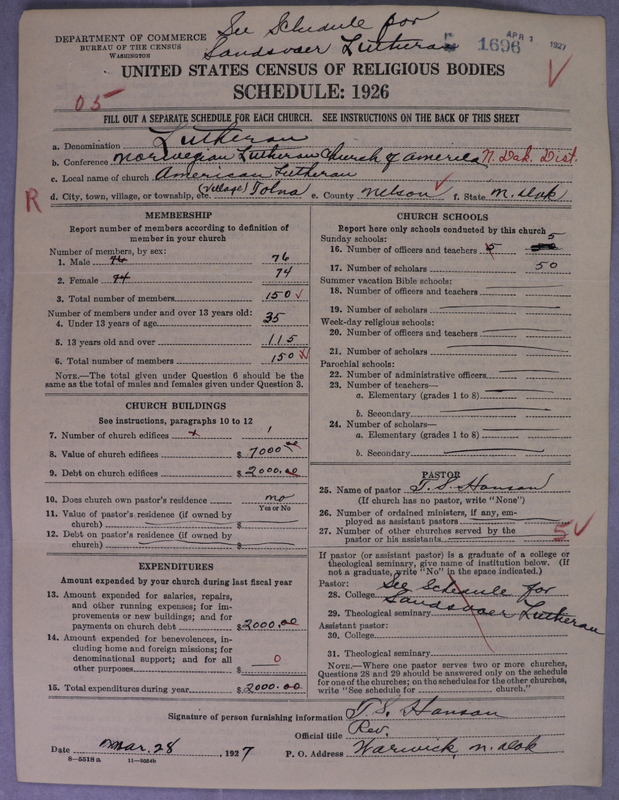 See Schedule for
Sandsvaer Lutheran
DEPARTMENT OF COMMERCE
BUREAU OF THE CENSUS
WASHINGTON
1696 APR 1 1927
UNITED STATES CENSUS OF RELIGIOUS BODIES
SCHEDULE: 1926
05
FILL OUT A SEPARATE SCHEDULE FOR EACH CHURCH. SEE INSTRUCTIONS ON THE BACK OF THIS SHEET
a. Denomination Lutheran
b. Conference Norwegian Lutheran Church of America N. Dak. Dist.
c. Local name of church American Lutheran
R
d. City, town, village, or township, etc. (Village) Tolna e. County Nelson f. State N. Dak
MEMBERSHIP
Report number of members according to definition of
member in your church
Number of members, by sex:
1. Male 76 76
2. Female 74 74
3. Total number of members 150
Number of members under and over 13 years old:
4. Under 13 years of age 35
5. 13 years old and over 115
6. Total number of members 150
NOTE.—The total given under Question 6 should be
same as the total of males and females given under Question 3.
CHURCH BUILDINGS
See instructions, paragraphs 10 to 12
7. Number of church edifices 1
8. Value of church edifices $ 7000.00
9. Debt on church edifices $ 2000.00
10. Does church own pastor's residence no
Yes or No
11. Value of pastor's residence (if owned by
church) $
12. Debt on pastor's residence (if owned by
church) $
EXPENDITURES
Amount expended by your church during last fiscal year
13. Amount expended for salaries, repairs,
and other running expenses; for im-
provements or new buildings; and for
payments on church debt $ 2000.00
14. Amount expended for benevolences, in-
cluding home and foreign missions; for
denominational support; and for all
other purposes $ 0
15. Total expenditures during year $ 2000.00
CHURCH SCHOOLS
Report here only schools conducted by this church
Sunday schools:
16. Number of officers and teachers 5 5
17. Number of scholars 50
Summer vacation Bible schools:
18. Number of officers and teachers
19. Number of scholars
Week-day religious schools:
20. Number of officers and teachers
21. Number of scholars
Parochial schools:
22. Number of administrative officers
23. Number of teachers—
a. Elementary (grades 1 to 8)
b. Secondary
24. Number of scholars—
a. Elementary (grades 1 to 8)
b. Secondary
PASTOR
25. Name of pastor T. S. Hanson
(If church has no pastor, write "None")
26. Number of ordained ministers, if any, em-
ployed as assistant pastors
27. Number of other churches served by the
pastor or his assistants 5
If pastor (or assistant pastor) is a graduate of a college or
theological seminary, give name of institution below. (If
not a graduate, write "No" in the space indicated.)
Pastor: See Schedule for
28. College Sandsvaer Lutheran
29. Theological seminary
Assistant pastor:
30. College
31. Theological seminary
NOTE.—Where one pastor serves two or more churches,
Questions 28 and 29 should be answered only on the schedule
for one of the churches; on the schedules for the other churches,
write "See schedule for church."
Signature of person furnishing information T. S. Hanson
Official title Rev.
Date Mar. 28, 1927 P. O. Address Warwick, N. Dak
8-5518 a